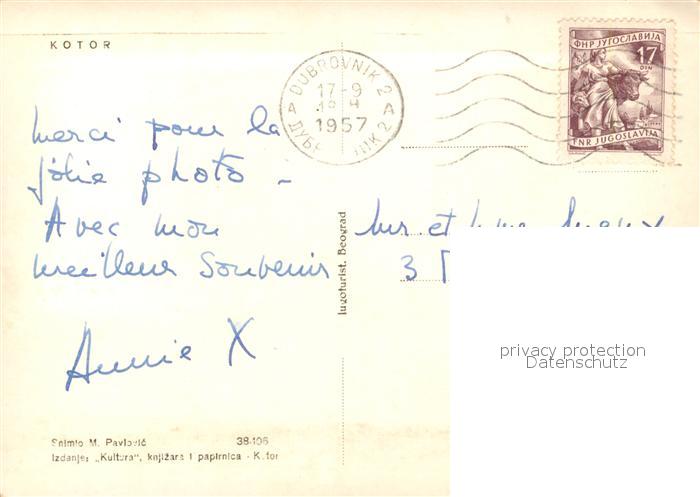 KOTOR
DUBROVNIK 2
17-9
1957
A A
ФНР ЈУГОСЛАВИЈА
17
DIN
FNR JUGOSLAVIJA
Merci pour la
jolie photo -
Avec mon
meilleur Souvenir
Annie X
Jugoturist. Beograd
Mr et Mme
3
privacy protection
Datenschutz
Snimio M. Pavlović 38-106
Izdanje: „Kultura", knjižara i papirnica - Kotor